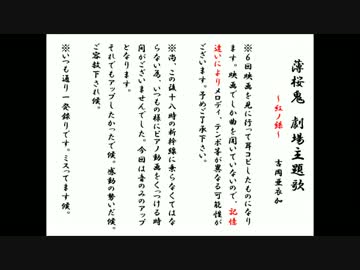 薄桜鬼 劇場主題歌
～紅ノ絲～
吉岡亜衣加
※６回映画を見に行って耳コピしたものになり
ます。映画でしか曲を聞いていないので、記憶
違いによりメロディ、テンポ等が異なる可能性が
ございます。予めご了承下さい。
※尚、この後十八時の新幹線に乗らなくてはな
らない為、いつもの様にピアノ動画をくっつける時
間がございませんでした。今回は音のみのアップ
となります。
それでもアップしたかたで候。感動の勢いだ候。
ご容赦下され候。
※いつも通り一発録りです。ミスってます候。